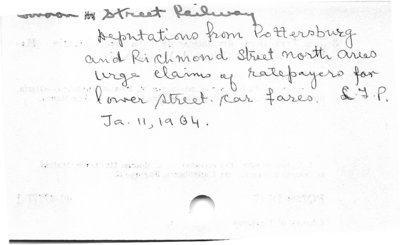 Street Railway
Deputations from Pottersburg
and Richmond Street north areas
urge claims of ratepayers for
lower street car fares. L.F.P.
Ja. 11, 1904.